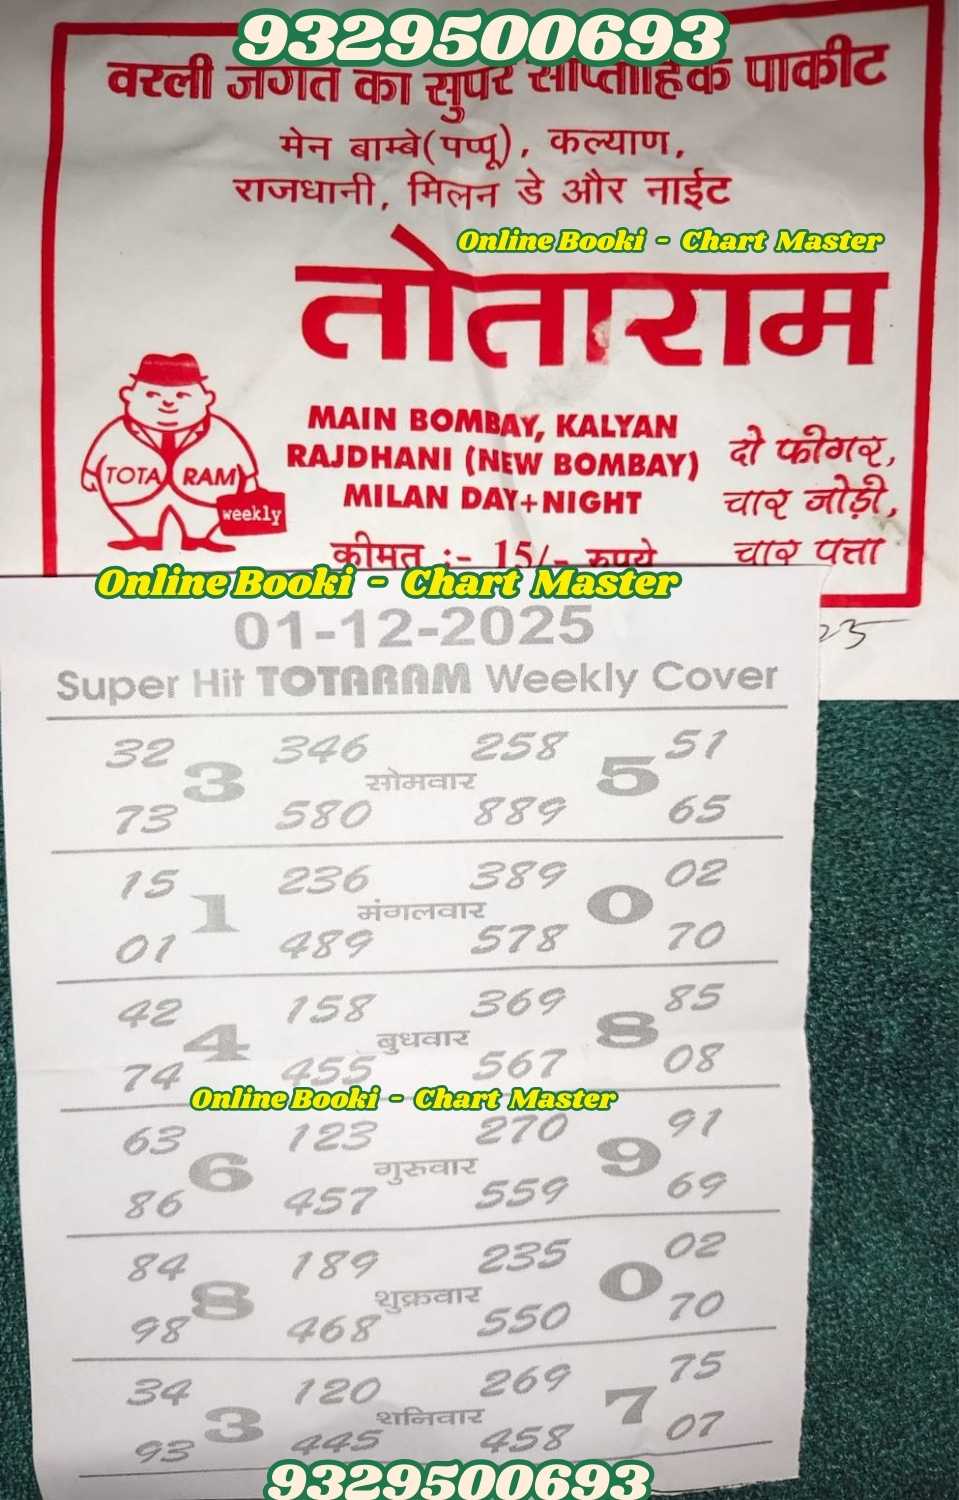 9329500693
वरली जगत का सुपर साप्ताहिक पाकीट
मेन बाम्बे(पप्पू), कल्याण,
राजधानी, मिलन डे और नाईट
Online Booki - Chart Master
तोताराम
MAIN BOMBAY, KALYAN
RAJDHANI (NEW BOMBAY)
MILAN DAY+NIGHT
दो फीगर,
चार जोड़ी,
चार पत्ता
TOTA RAM
weekly
कीमत :- 15/- रुपये
Online Booki - Chart Master
01-12-2025
Super Hit TOTARAM Weekly Cover
32 346 258 51
3 सोमवार 5
73 580 889 65
15 236 389 02
1 मंगलवार 0
01 489 578 70
42 158 369 85
4 बुधवार 8
74 455 567 08
Online Booki - Chart Master
63 123 270 91
6 गुरुवार 9
86 457 559 69
84 189 235 02
8 शुक्रवार 0
98 468 550 70
34 120 269 75
3 शनिवार 7
93 445 458 07
9329500693